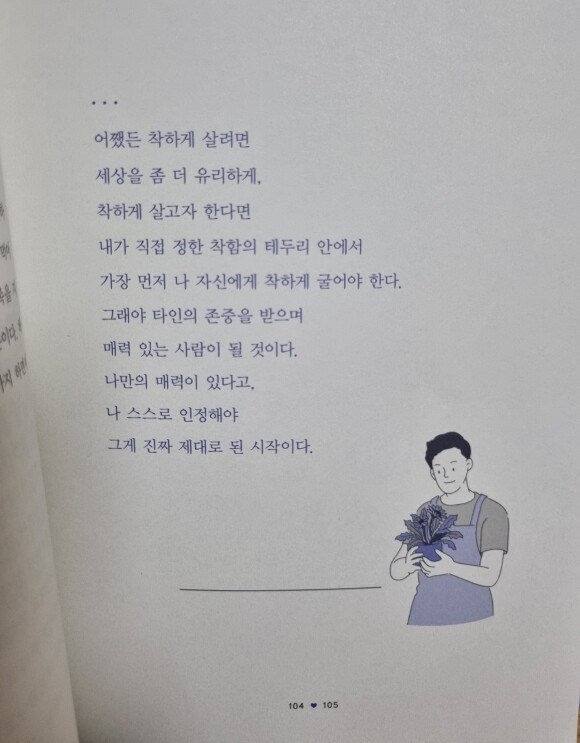 ...
어쨌든 착하게 살려면
세상을 좀 더 유리하게,
착하게 살고자 한다면
내가 직접 정한 착함의 테두리 안에서
가장 먼저 나 자신에게 착하게 굴어야 한다.
그래야 타인의 존중을 받으며
매력 있는 사람이 될 것이다.
나만의 매력이 있다고,
나 스스로 인정해야
그게 진짜 제대로 된 시작이다.
104 ♥ 105